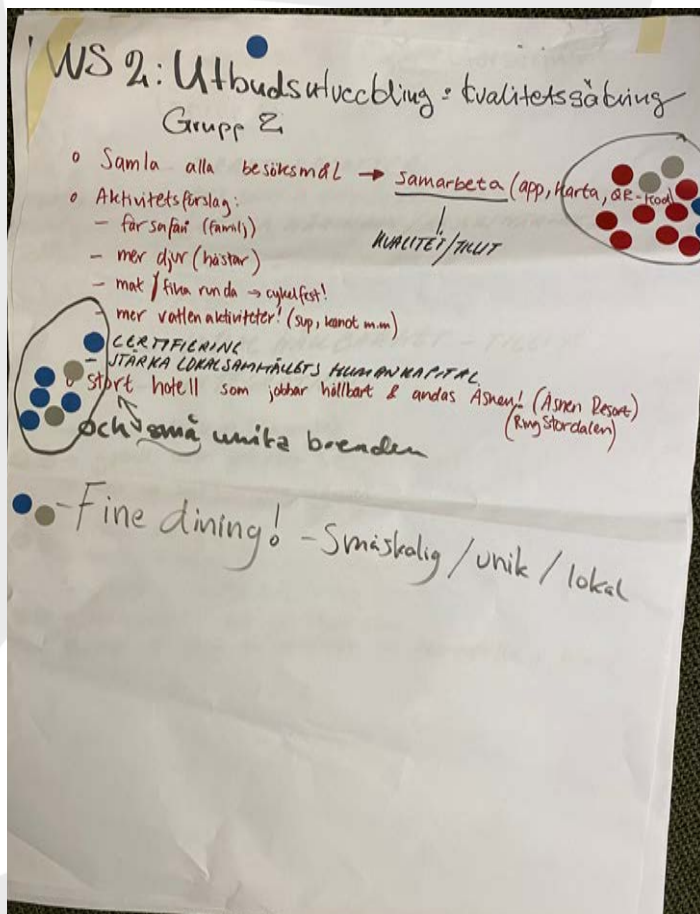 WS 2: Utbudsutveckling = kvalitetssäkring
Grupp 2
o Samla alla besöksmål → samarbeta (app, karta, QR-kod)
KVALITET/TILLIT
o Aktivitetsförslag:
- fårsafari (familj)
- mer djur (hästar)
- mat / fika runda → cykelfest!
- mer vattenaktiviteter! (sup, kanot m.m)
- CERTIFIERING
- STÄRKA LOKALSAMHÄLLETS HUMANKAPITAL
o stort hotell som jobbar hållbart & andas Åsnen! (Åsnen Resort)
(Ring Stordalen)
och små unika boenden
- Fine dining! - Småskalig / unik / lokal